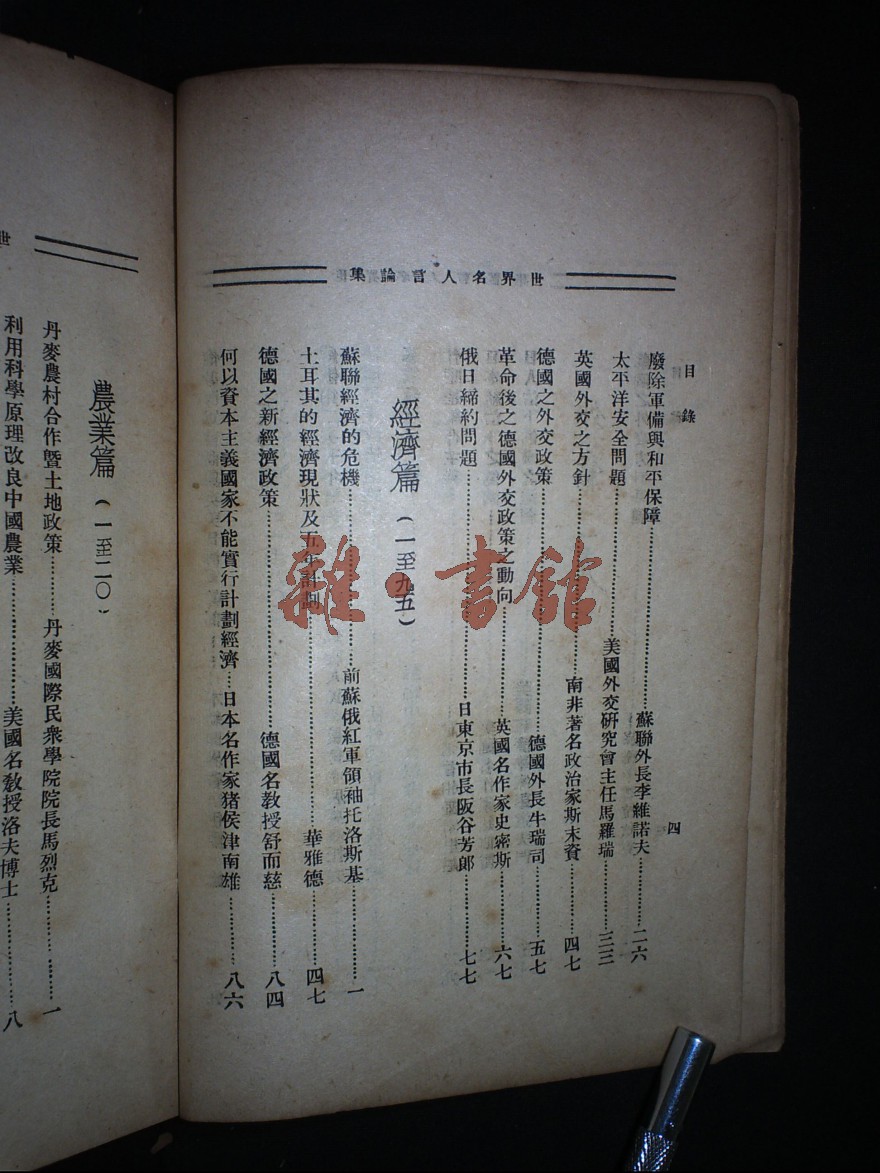 世界名人言論集
目錄 四
廢除軍備與和平保障……蘇聯外長李維諾夫……二六
太平洋安全問題……美國外交研究會主任馬羅瑞……三三
英國外交之方針……南非著名政治家斯末資……四七
德國之外交政策……德國外長牛瑞司……五七
革命後之德國外交政策之動向……英國名作家史密斯……六七
俄日締約問題……日東京市長阪谷芳郎……七七
經濟篇（一至九五）
蘇聯經濟的危機……前蘇俄紅軍領袖托洛斯基……一
土耳其的經濟現狀及五年計劃……華雅德……四七
德國之新經濟政策……德國名教授舒而慈……八四
何以資本主義國家不能實行計劃經濟……日本名作家猪侯津南雄……八六
世
農業篇（一至二〇）
丹麥農村合作暨土地政策……丹麥國際民衆學院院長馬烈克……一
利用科學原理改良中國農業……美國名教授洛夫博士……八
雜·書館